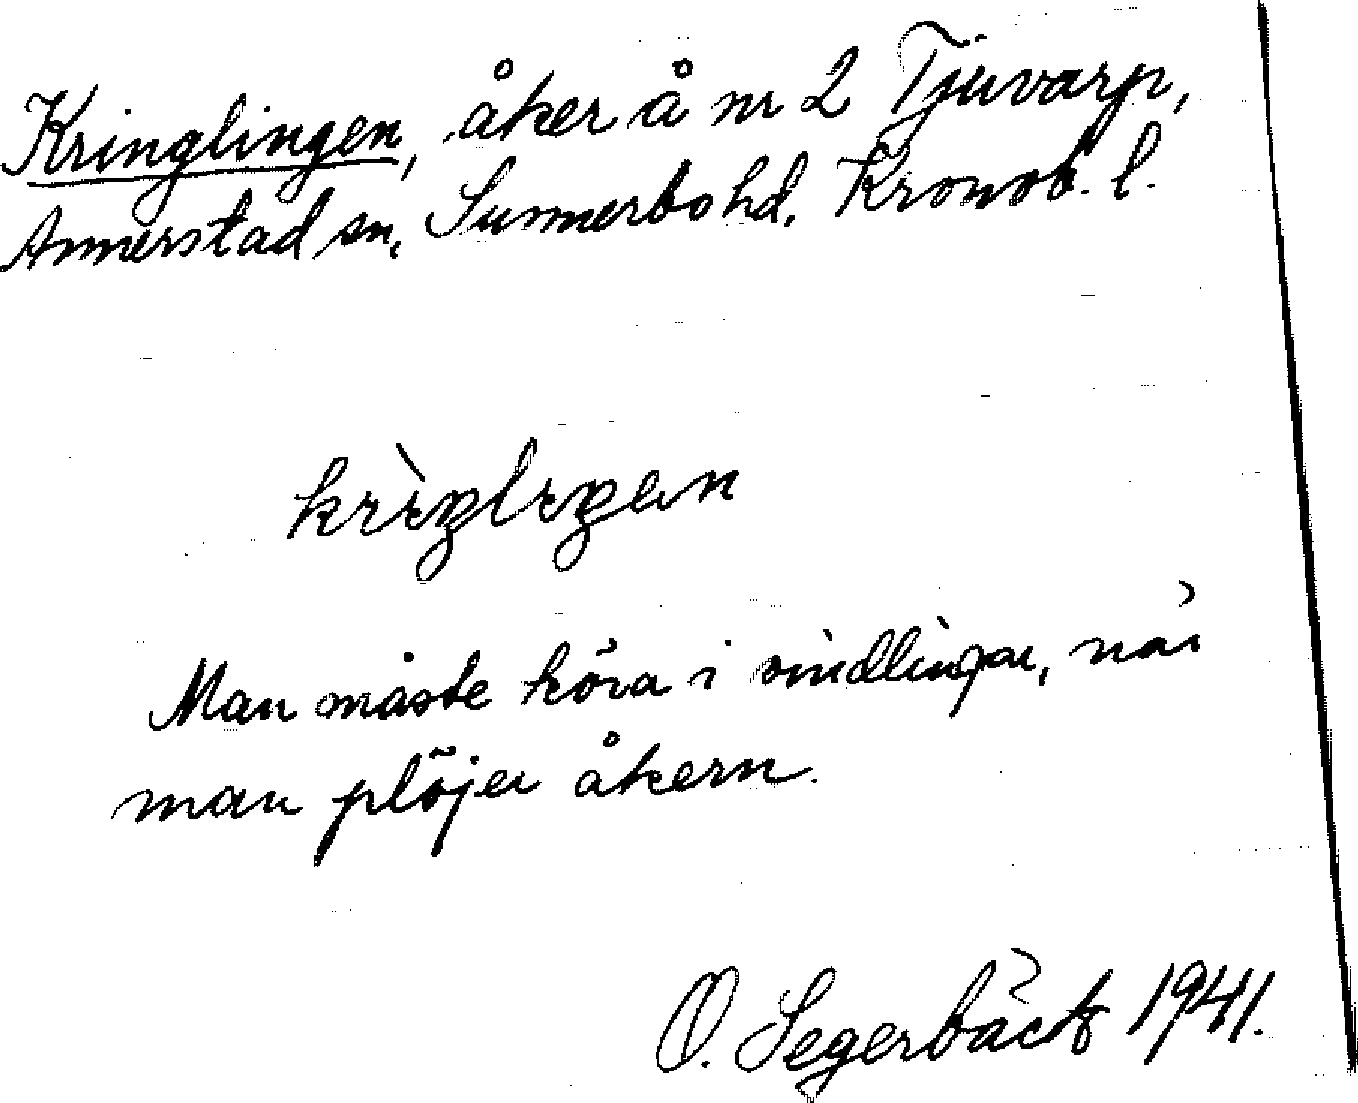 Kringlingen, åker å nr 2 Tjuvarp,
Annerstad sn, Sunnerbo hd, Kronob. l.
krìŋlıŋan
Man måste köra i vindlingar, när
man plöjer åkern.
O. Segerbäck 1941.